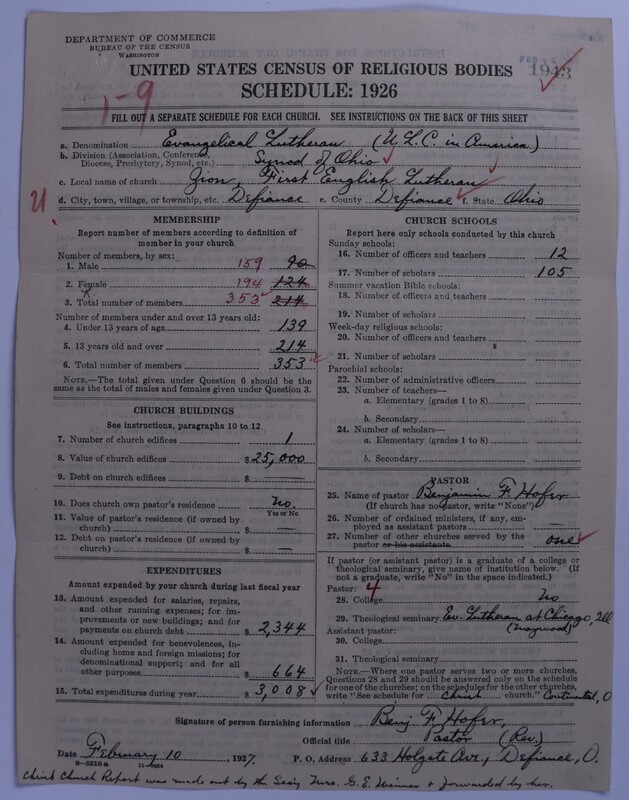 DEPARTMENT OF COMMERCE
BUREAU OF THE CENSUS
WASHINGTON
FEB
1943
UNITED STATES CENSUS OF RELIGIOUS BODIES
SCHEDULE: 1926
1-9
FILL OUT A SEPARATE SCHEDULE FOR EACH CHURCH. SEE INSTRUCTIONS ON THE BACK OF THIS SHEET
a. Denomination Evangelical Lutheran (U.L.C. in America)
b. Division (Association, Conference, Diocese, Presbytery, Synod, etc.) Synod of Ohio
c. Local name of church Zion, First English Lutheran
U.
d. City, town, village, or township, etc. Defiance e. County Defiance f. State Ohio
MEMBERSHIP
Report number of members according to definition of
member in your church
Number of members, by sex:
1. Male 159 90
2. Female 194 124
3. Total number of members 353 214
Number of members under and over 13 years old:
4. Under 13 years of age 139
5. 13 years old and over 214
6. Total number of members 353
NOTE.—The total given under Question 6 should be the
same as the total of males and females given under Question 3.
CHURCH BUILDINGS
See instructions, paragraphs 10 to 12
7. Number of church edifices 1
8. Value of church edifices $25,000
9. Debt on church edifices $ —
10. Does church own pastor's residence No.
Yes or No
11. Value of pastor's residence (if owned by
church) $
12. Debt on pastor's residence (if owned by
church) $ —
EXPENDITURES
Amount expended by your church during last fiscal year
13. Amount expended for salaries, repairs,
and other running expenses; for improvements
or new buildings; and for
payments on church debt $2,344
14. Amount expended for benevolences, including
home and foreign missions; for
denominational support; and for all
other purposes $664
15. Total expenditures during year $3,008
CHURCH SCHOOLS
Report here only schools conducted by this church
Sunday schools:
16. Number of officers and teachers 12
17. Number of scholars 105
Summer vacation Bible schools:
18. Number of officers and teachers
19. Number of scholars
Week-day religious schools:
20. Number of officers and teachers
21. Number of scholars
Parochial schools:
22. Number of administrative officers
23. Number of teachers—
a. Elementary (grades 1 to 8)
b. Secondary
24. Number of scholars—
a. Elementary (grades 1 to 8)
b. Secondary
PASTOR
25. Name of pastor Benjamin F. Hofer
(If church has no pastor, write "None")
26. Number of ordained ministers, if any, employed
as assistant pastors —
27. Number of other churches served by the
pastor or his assistants one
If pastor (or assistant pastor) is a graduate of a college or
theological seminary, give name of institution below. (If
not a graduate, write "No" in the space indicated.)
Pastor: 4
28. College No
29. Theological seminary Ev. Lutheran at Chicago, Ill
Assistant pastor: (Maywood)
30. College
31. Theological seminary
NOTE.—Where one pastor serves two or more churches,
Questions 28 and 29 should be answered only on the schedule
for one of the churches; on the schedules for the other churches,
write "See schedule for Christ church." Continental, O
Signature of person furnishing information Benj. F. Hofer,
Official title Pastor (Rev.)
Date February 10, 1927. P. O. Address 633 Holgate Ave., Defiance, O.
8—5518a 11-9024
Christ Church Report was made out by the Secy G. E. & forwarded by her.